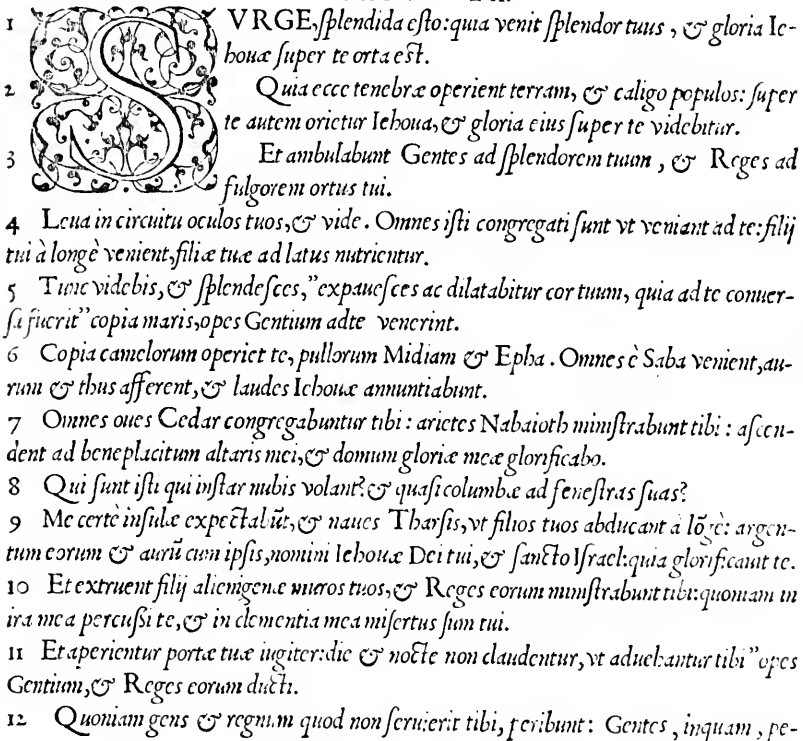 1 SVRGE, ſplendida eſto: quia venit ſplendor tuus, & gloria Ie-
houæ ſuper te orta eſt.
2 Quia ecce tenebræ operient terram, & caligo populos: ſuper
te autem orietur Iehoua, & gloria eius ſuper te videbitur.
3 Et ambulabunt Gentes ad ſplendorem tuum, & Reges ad
fulgorem ortus tui.
4 Leua in circuitu oculos tuos, & vide. Omnes iſti congregati ſunt vt veniant ad te: filij
tui à longè venient, filiæ tuæ ad latus nutrientur.
5 Tunc videbis, & ſplendeſces, "expaueſces ac dilatabitur cor tuum, quia ad te conuer-
ſa fuerit "copia maris, opes Gentium ad te venerint.
6 Copia camelorum operiet te, pullorum Midiam & Epha. Omnes è Saba venient, au-
rum & thus afferent, & laudes Iehouæ annuntiabunt.
7 Omnes oues Cedar congregabuntur tibi: arietes Nabaioth miniſtrabunt tibi: aſcen-
dent ad beneplacitum altaris mei, & domum gloriæ meæ glorificabo.
8 Qui ſunt iſti qui inſtar nubis volant? & quaſi columbæ ad feneſtras ſuas?
9 Me certè inſulæ expectabũt, & naues Tharſis, vt filios tuos abducant à lõgè: argen-
tum eorum & aurũ cum ipſis, nomini Iehouæ Dei tui, & ſancto Iſrael: quia glorificauit te.
10 Et extruent filij alienigenæ muros tuos, & Reges eorum miniſtrabunt tibi: quoniam in
ira mea percuſsi te, & in clementia mea miſertus ſum tui.
11 Et aperientur portæ tuæ iugiter: die & nocte non claudentur, vt aduehantur tibi "opes
Gentium, & Reges eorum ducti.
12 Quoniam gens & regnum quod non ſeruierit tibi, peribunt: Gentes, inquam, pe-